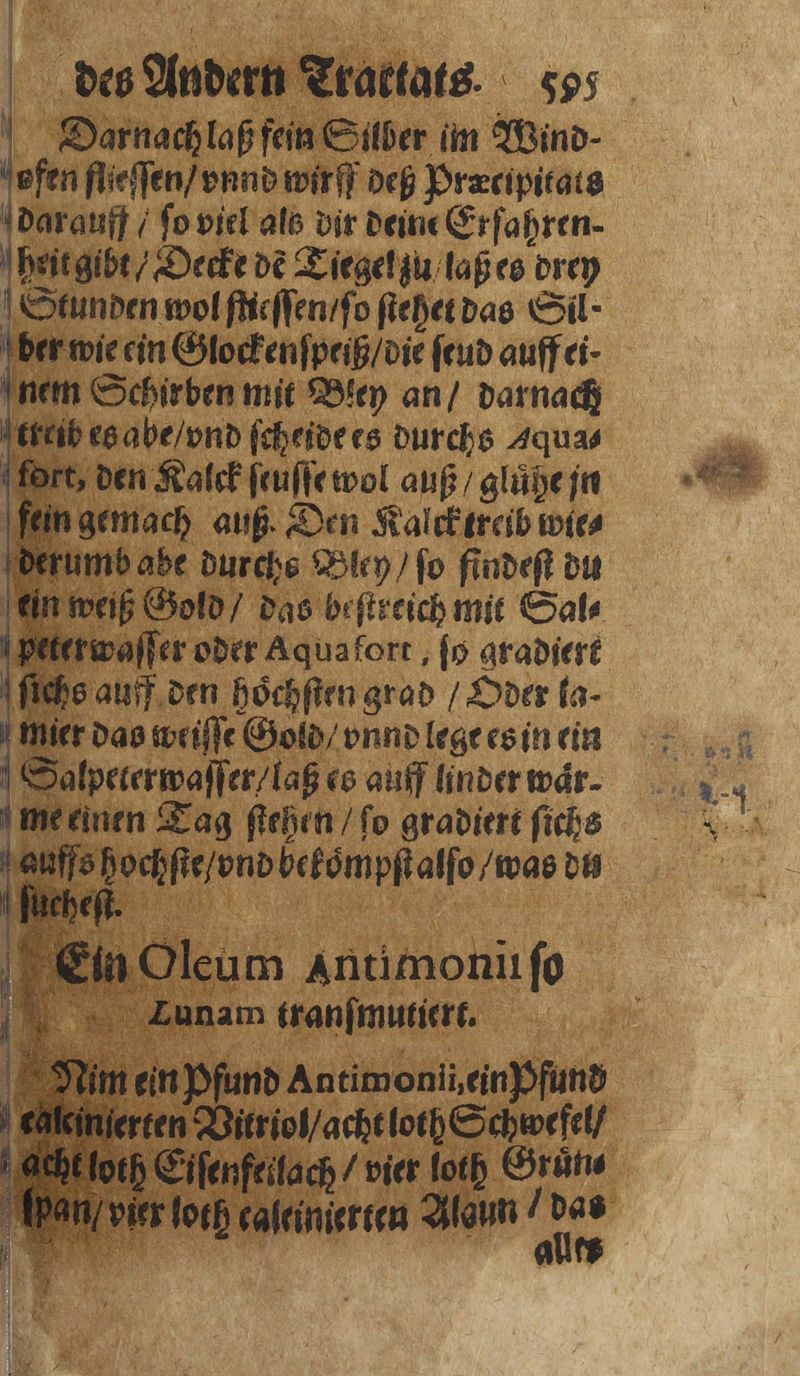 des Andern Tractats. 595
Darnach laß fein Silber im Wind-
ofen flieſſen/ vnnd wirff deß Præcipitats
darauff / ſo viel als dir deine Erfahren-
heit gibt / Decke dẽ Tiegel zu / laß es drey
Stunden wol flieſſen / ſo ſtehet das Sil-
ber wie ein Glockenſpeiß / die ſeud auff ei-
nem Schirben mit Bley an / darnach
treib es abe / vnd ſcheide es durchs Aqua-
fort, den Kalck ſeuſſe wol auß / gluͤhe jn
fein gemach auß. Den Kalck treib wie-
derumb abe durchs Bley / ſo findeſt du
ein weiß Gold / das beſtreich mit Sal-
peterwaſſer oder Aquafort, ſo gradiert
ſichs auff den hoͤchſten grad / Oder la-
mier das weiſſe Gold / vnnd lege es in ein
Salpeterwaſſer / laß es auff linder waͤr-
me einen Tag ſtehen / ſo gradiert ſichs
auffs hochſte / vnd bekoͤmpſt alſo / was du
ſucheſt.
Ein Oleum Antimonii ſo
Lunam tranſmutiert.
Nim ein Pfund Antimonii, ein Pfund
calcinierten Vitriol / acht loth Schwefel /
acht loth Eiſenfeilach / vier loth Gruͤn-
ſpan / vier loth calcinierten Alaun / das
alles